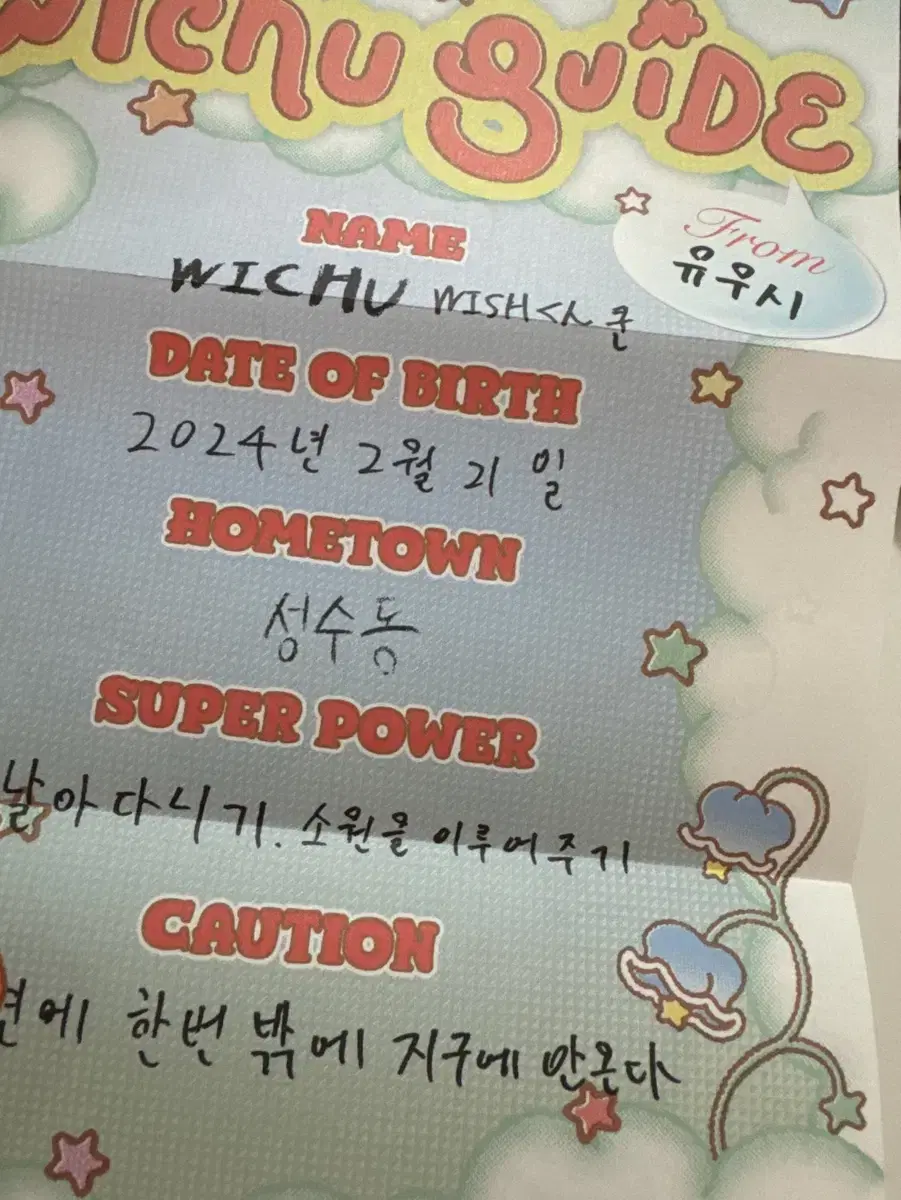 WICHU GUIDE
From
유우시
NAME
WICHU WISHくん 군
DATE OF BIRTH
2024년 2월 21일
HOMETOWN
성수동
SUPER POWER
날아다니기. 소원을 이루어주기
CAUTION
년에 한번 밖에 지구에 안온다